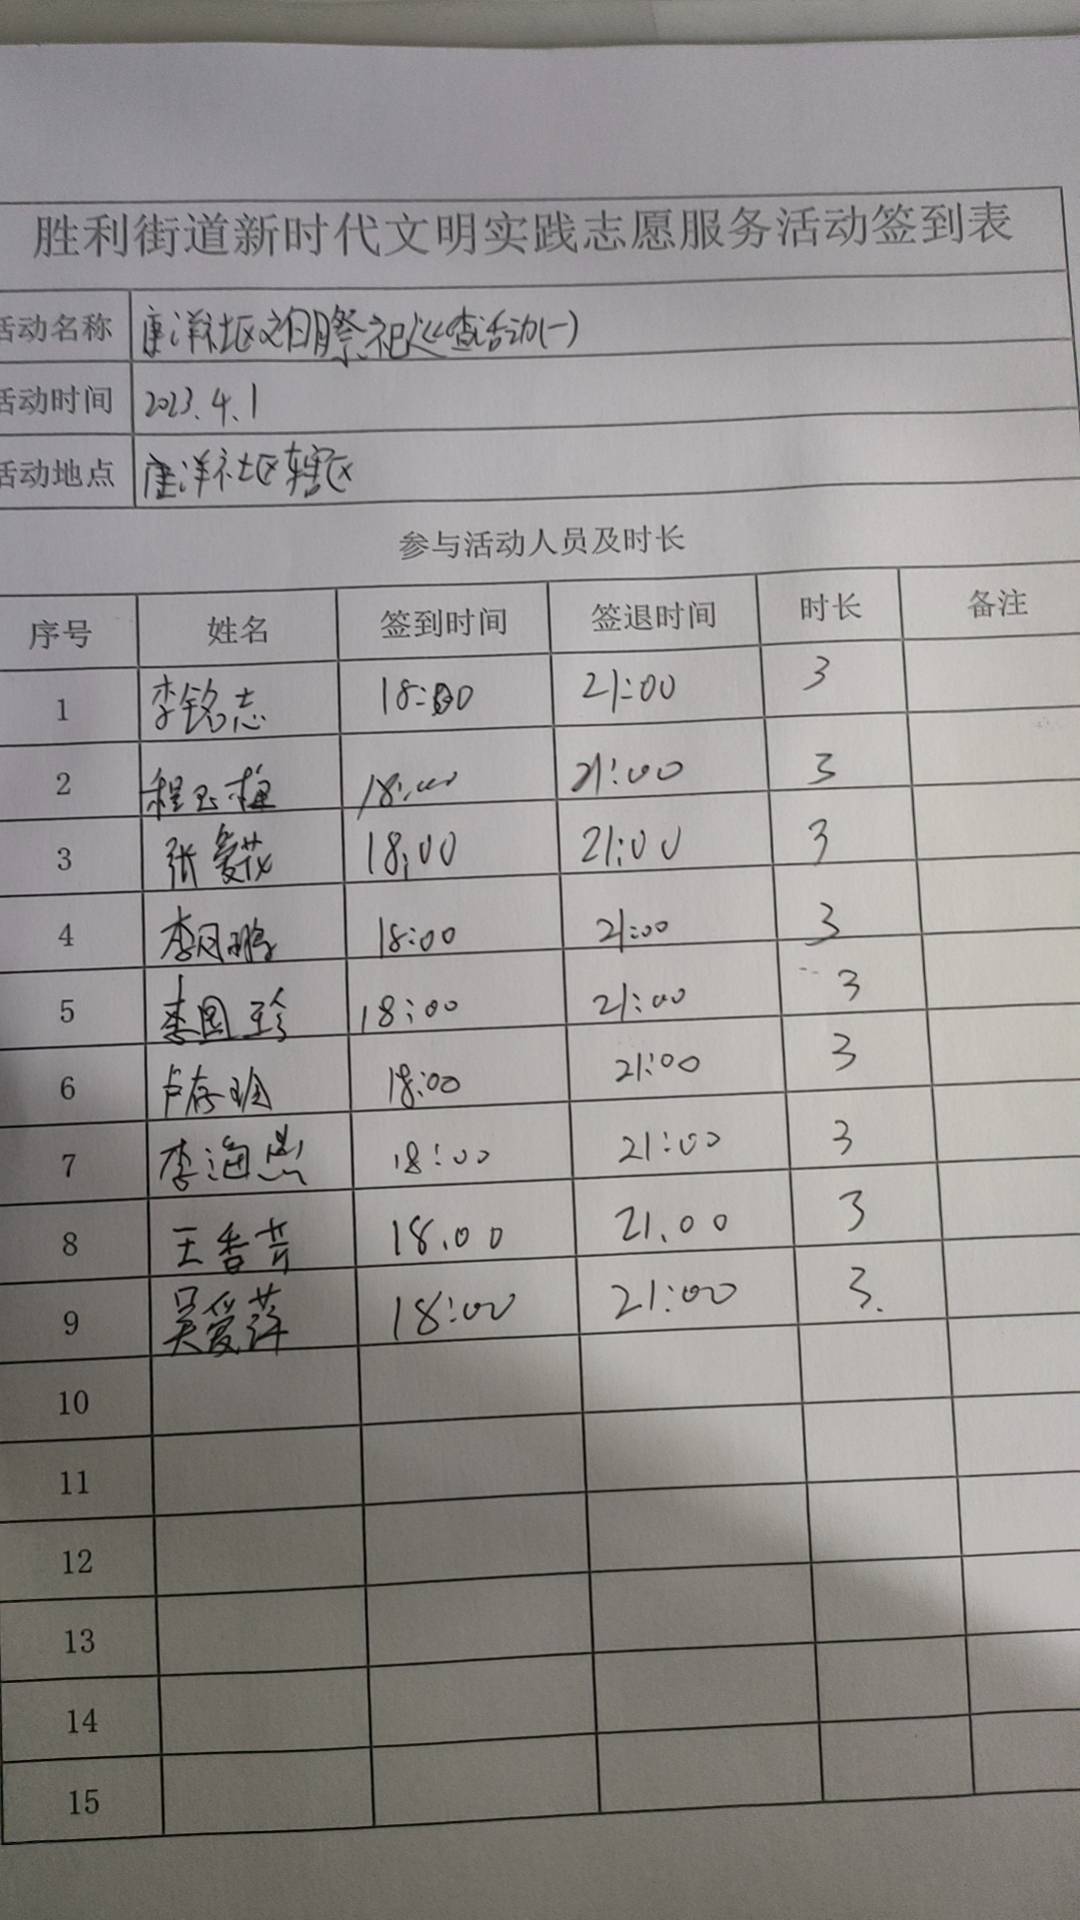 胜利街道新时代文明实践志愿服务活动签到表
活动名称 康洋社区文明祭祀巡查活动(一)
活动时间 2023.4.1
活动地点 康洋社区辖区
参与活动人员及时长
序号 姓名 签到时间 签退时间 时长 备注
1 李铭志 18:00 21:00 3
2 程玉梅 18:00 21:00 3
3 张爱花 18:00 21:00 3
4 李风鹏 18:00 21:00 3
5 李国珍 18:00 21:00 3
6 卢存 18:00 21:00 3
7 李海 18:00 21:00 3
8 王香芳 18.00 21.00 3
9 吴爱萍 18:00 21:00 3.
10
11
12
13
14
15